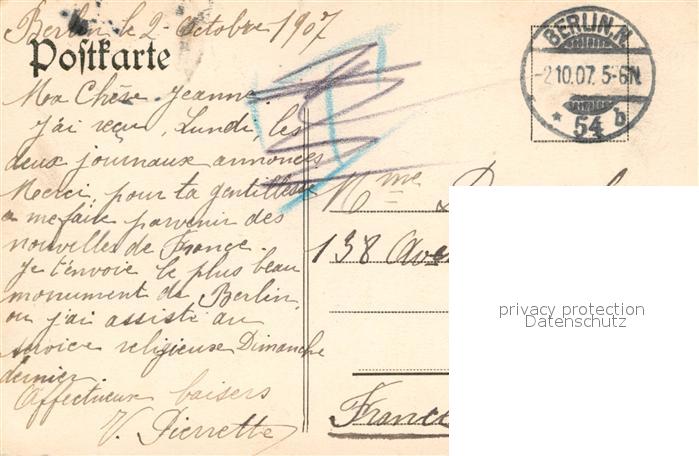 Berlin le 2 Octobre 1907
Postkarte
BERLIN.N.
-2.10.07. 5-6N.
* 54 b
Ma Chère Jeanne,
J'ai reçu, Lundi, les
deux journaux annoncés
Merci, pour ta gentillesse
a me faire parvenir des
nouvelles de France.
Je t'envoie le plus beau
monument de Berlin,
ou j'ai assisté au
service religieuse Dimanche
dernier.
Affectueux baisers
V. Pierrette
Mme
138 Ave
France
privacy protection
Datenschutz